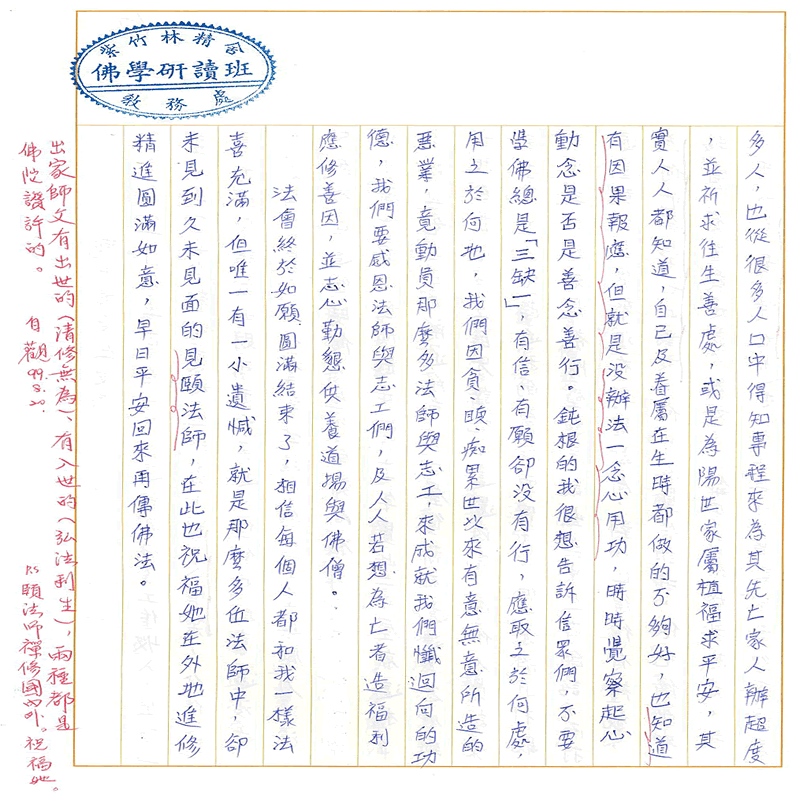 紫竹林精舍
佛學研讀班
教務處
多人，也從很多人口中得知專程來為其先亡家人辦超度
，並祈求往生善處，或是為陽世家屬植福求平安，其
實人人都知道，自己及眷屬在生時都做的不夠好，也知道
有因果報應，但就是沒辦法一念心用功，時時覺察起心
動念是否是善念善行。鈍根的我很想告訴信眾們，不要
學佛總是「三缺一」，有信、有願卻沒有行，應取之於何處，
用之於何地，我們因貪、瞋、痴累世以來有意無意所造的
惡業，竟動員那麼多法師與志工，來成就我們懺迴向的功
德，我們要感恩法師與志工們，及人人若想為亡者造福利
應修善因，並志心勤懇供養道場與佛僧。
法會終於如願、圓滿結束了，相信每個人都和我一樣法
喜充滿，但唯一有一小遺憾，就是那麼多位法師中，卻
未見到久未見面的見頤法師，在此也祝福她在外地進修
精進圓滿如意，早日平安回來再傳佛法。
出家師父有出世的（清修無為）、有入世的（弘法利生），兩種都是
佛陀讚許的。 自觀 99.8.20.
P.S 頤法師禪修國內外。祝福她。